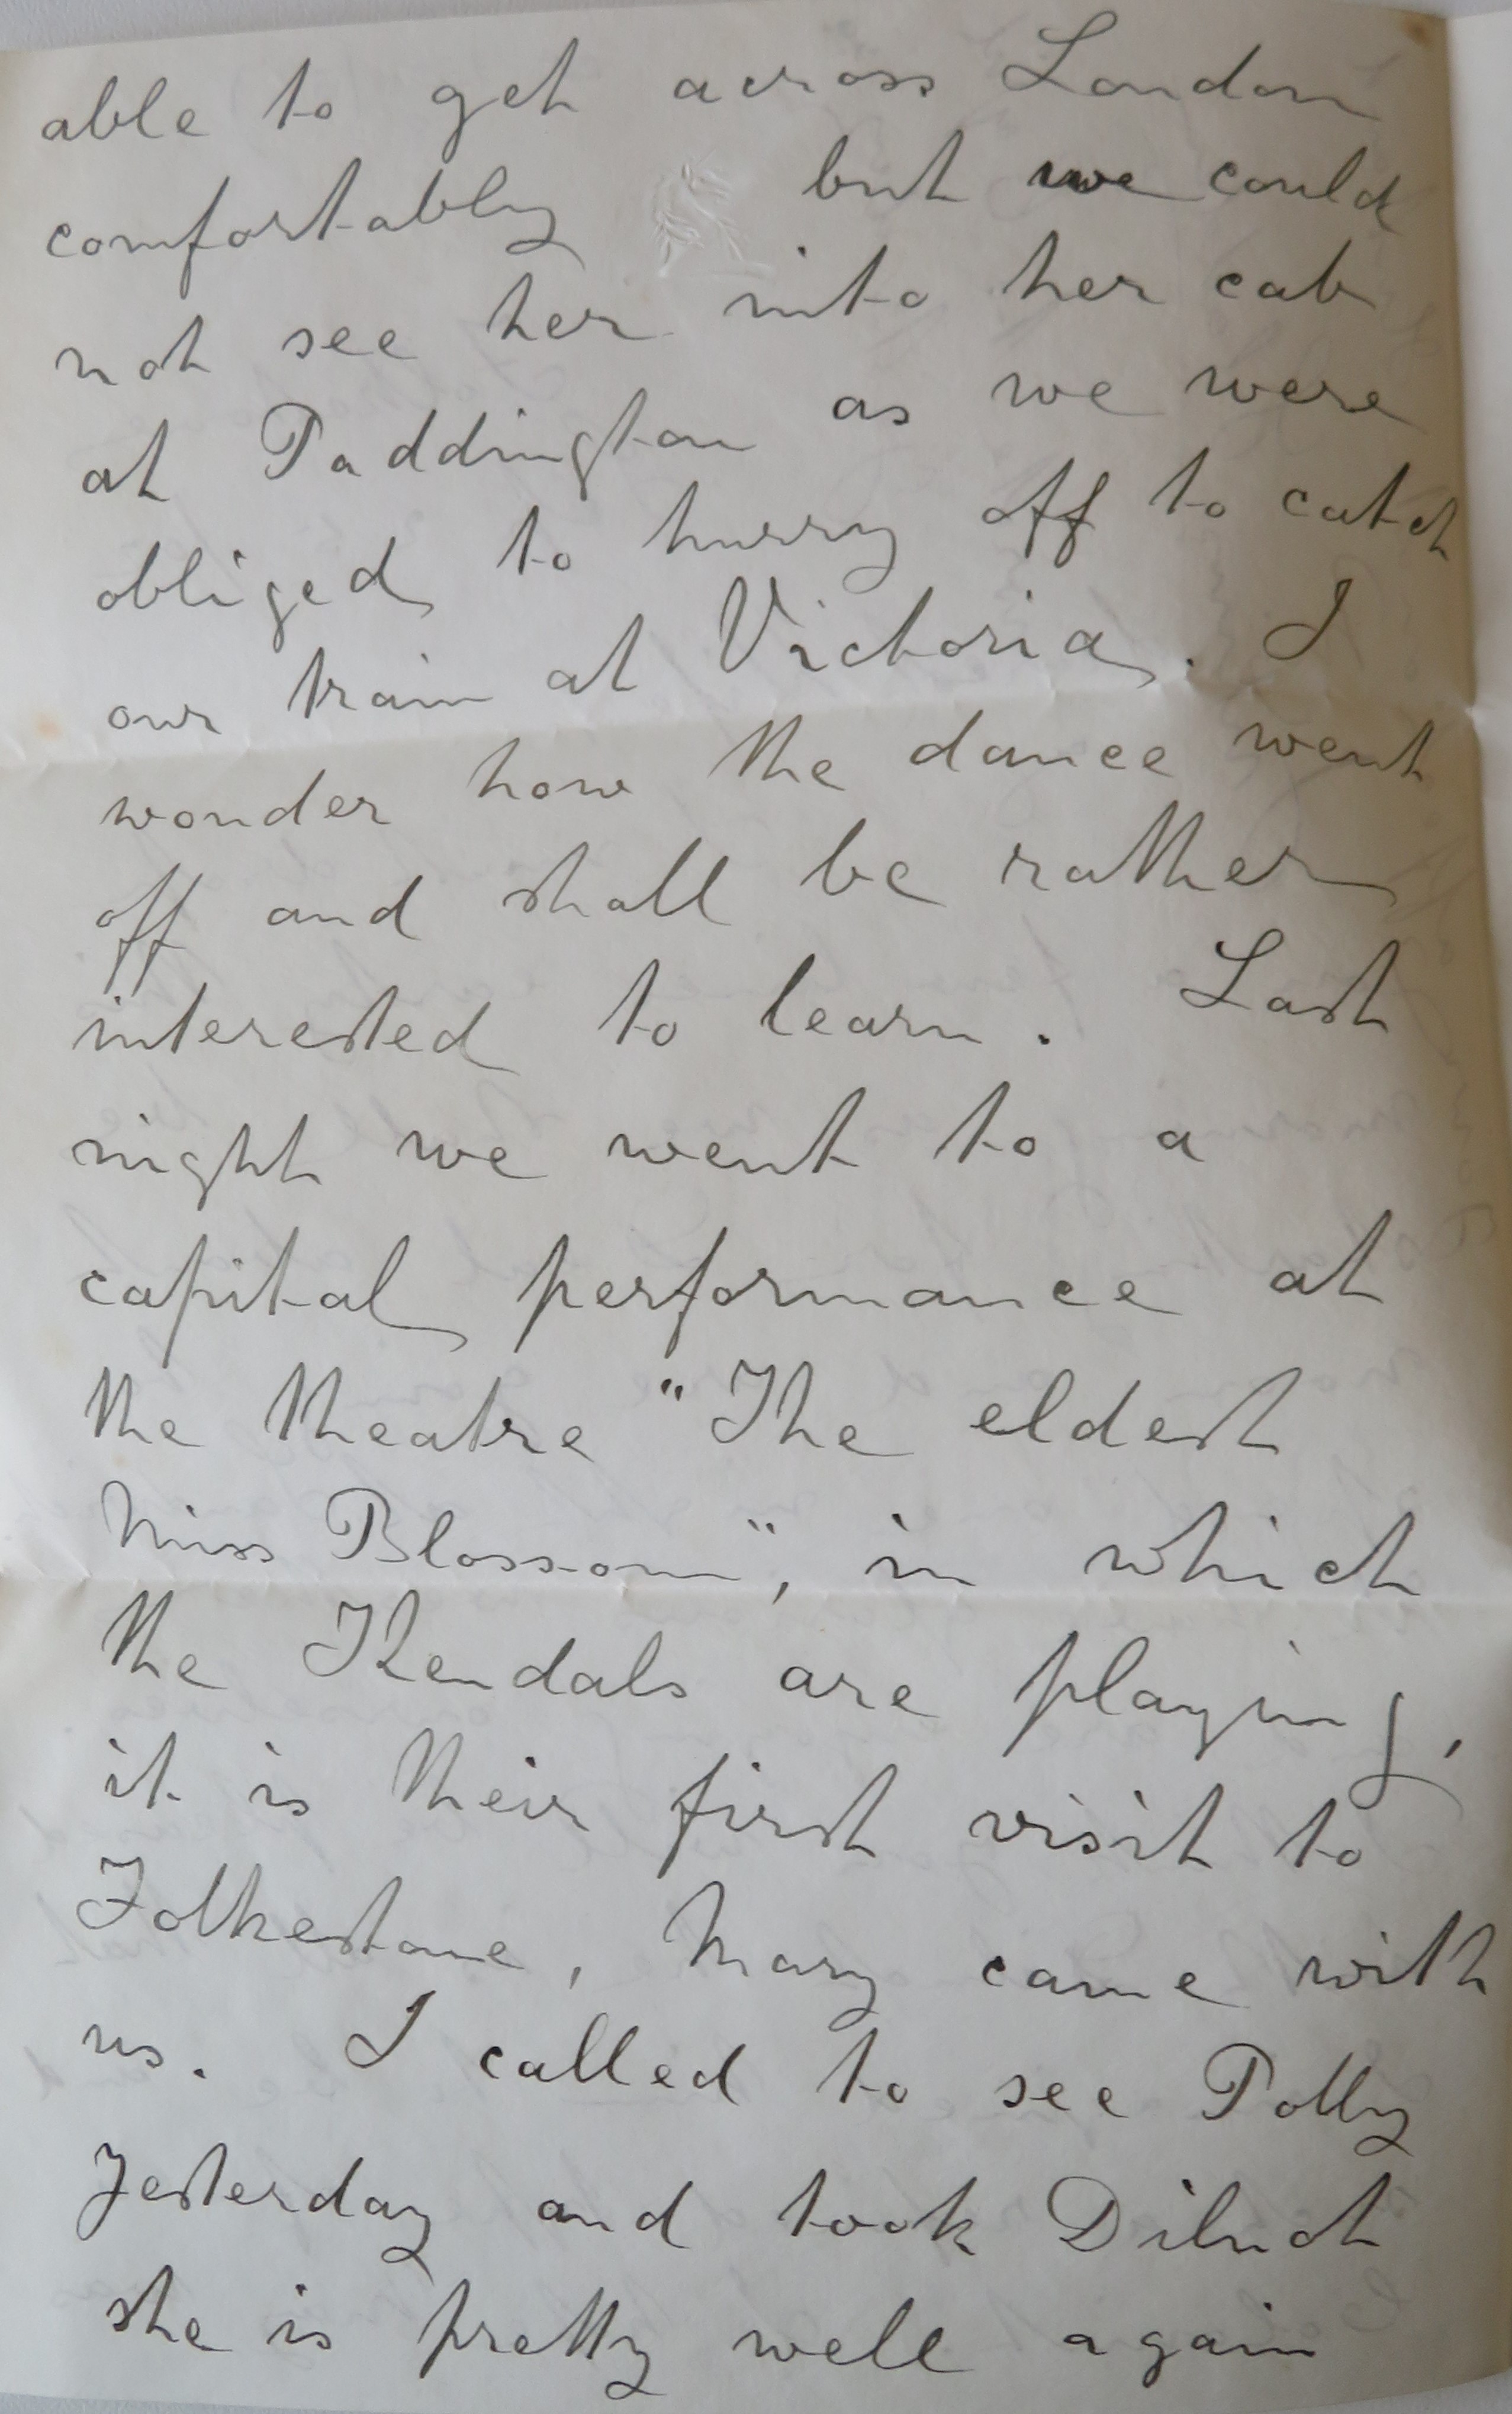 able to get across London
comfortably but we could
not see her into her cab
at Paddington as we were
obliged to hurry off to catch
our train at Victoria. I
wonder how the dance went
off and shall be rather
interested to learn. Last
night we went to a
capital performance at
the theatre "The eldest
Miss Blossom", in which
the Kendals are playing,
it is their first visit to
Folkestone, Mary came with
us. I called to see Polly
Yesterday and took
she is pretty well again